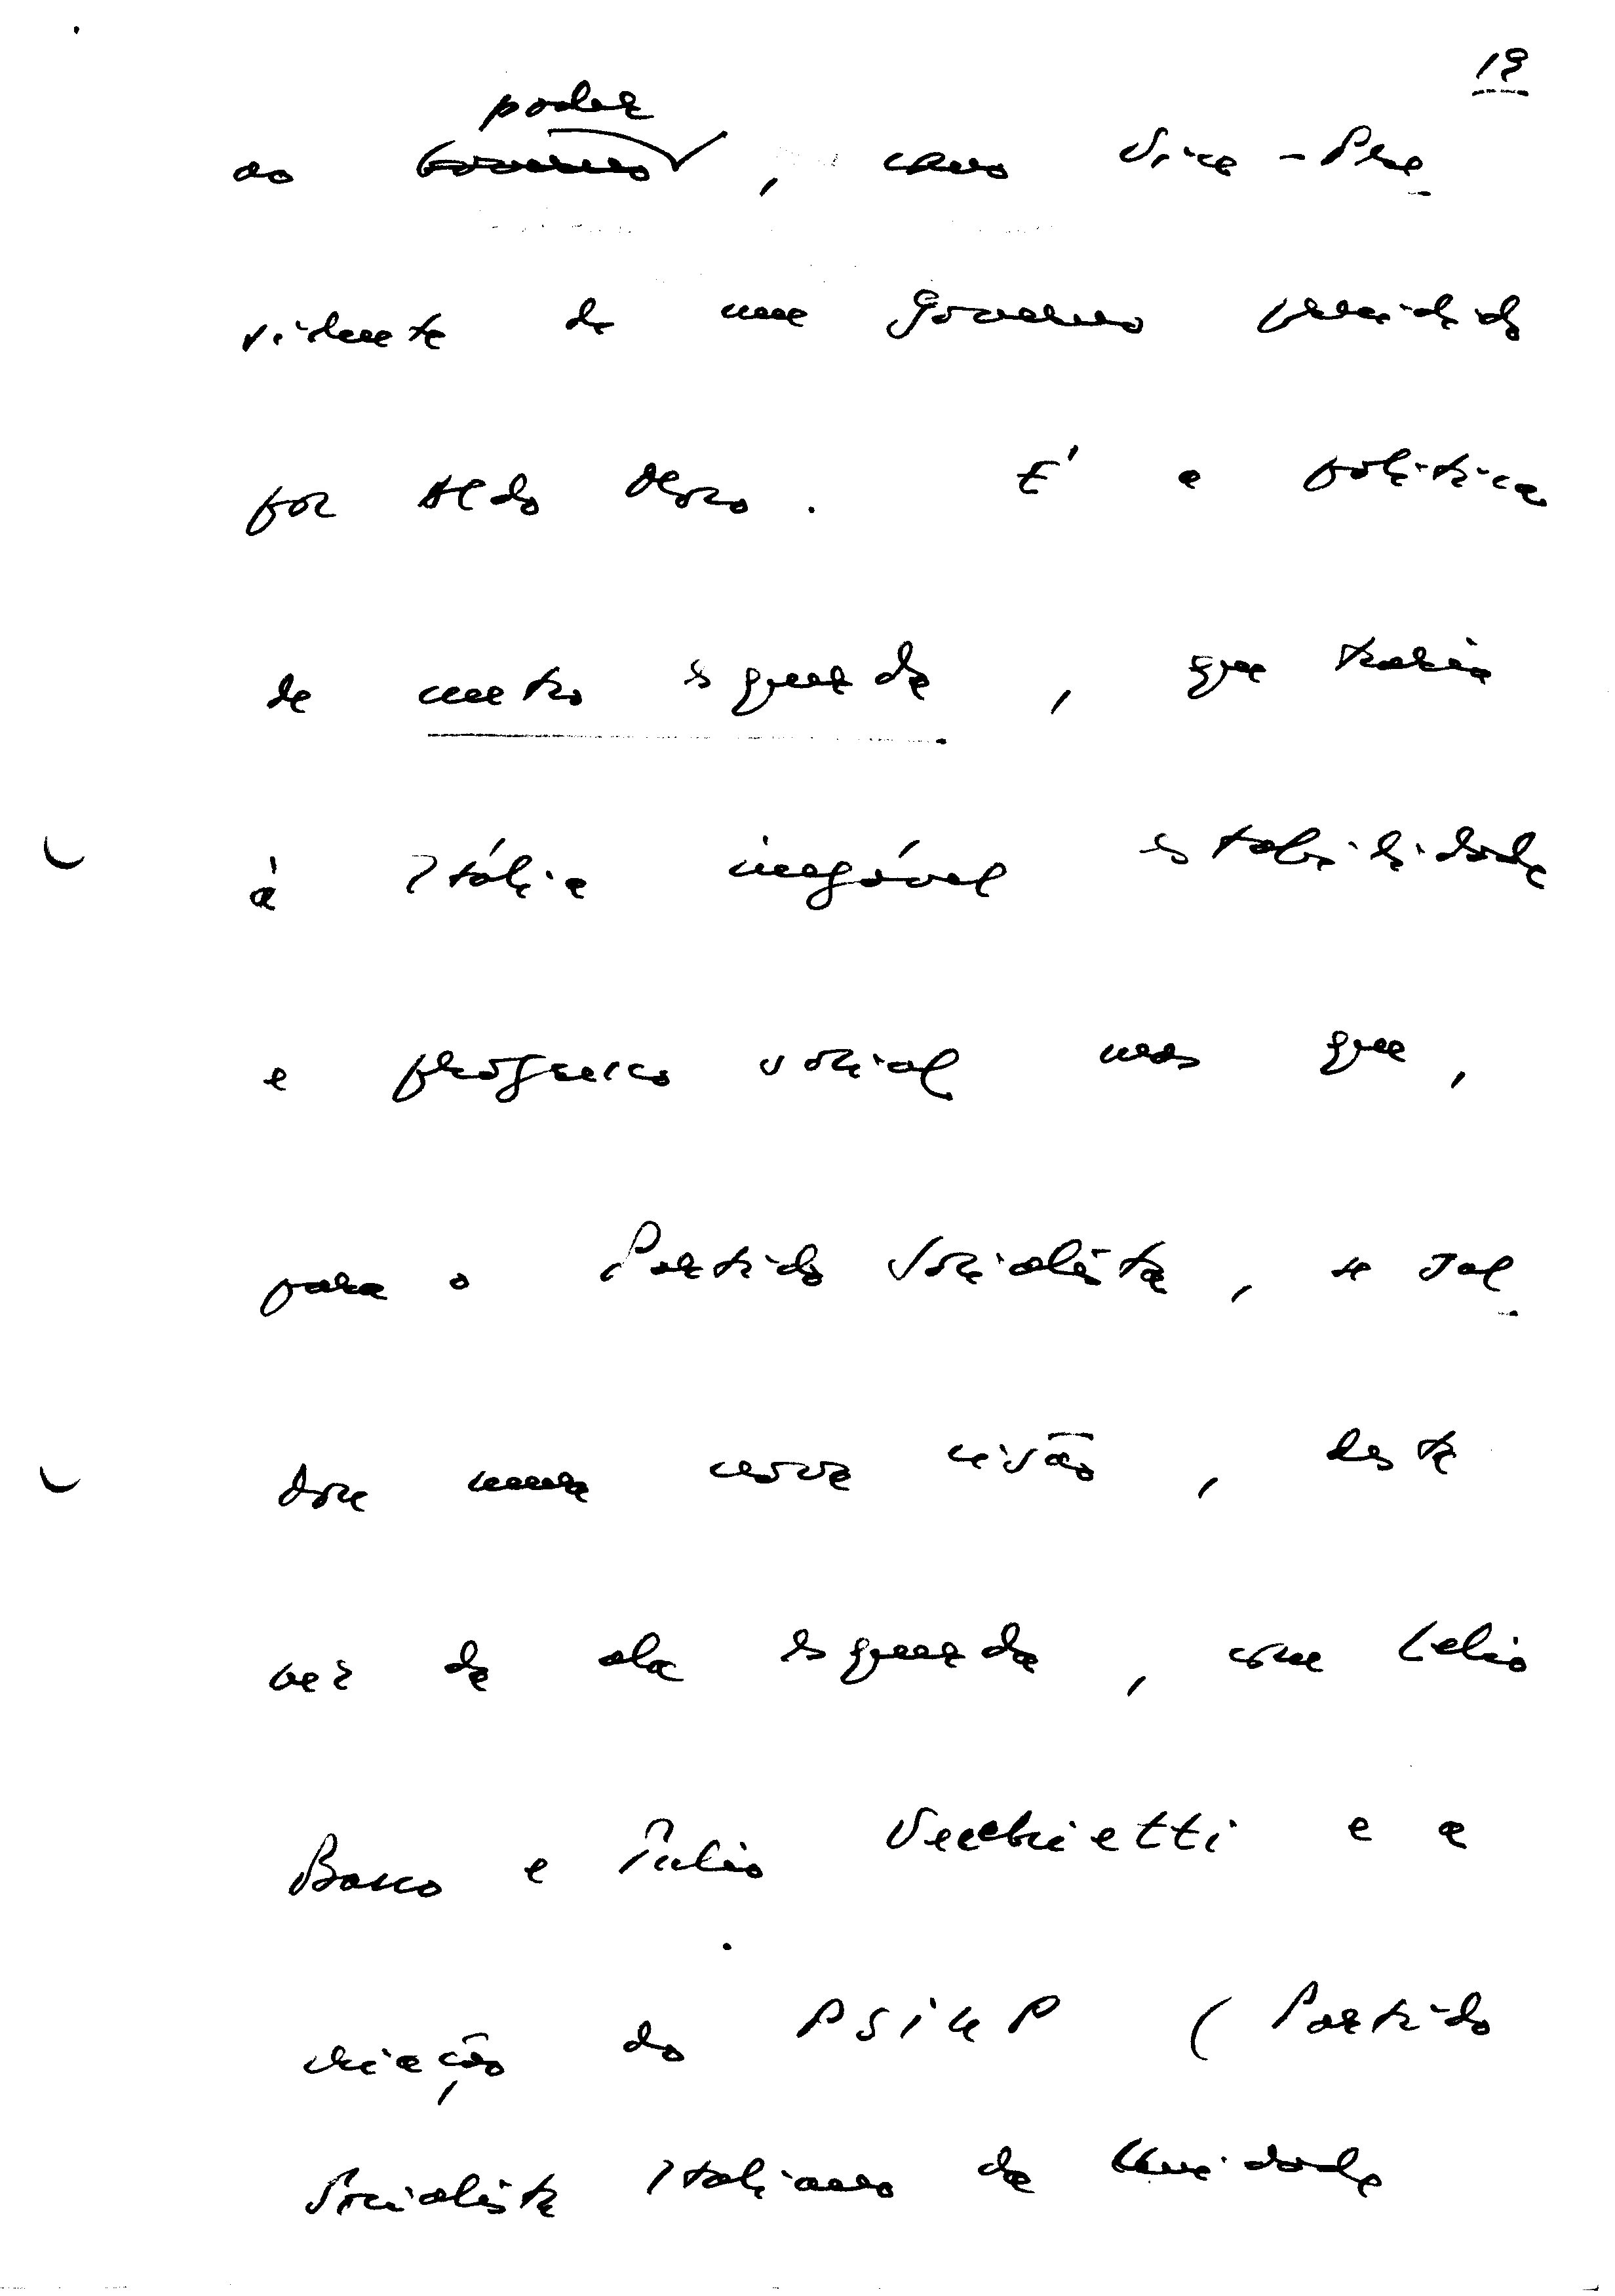 19
poder
ao Governo, como Vice-Pre
sidente de um Governo presidido
por Aldo Moro. É a política
de centro esquerda, que trazia
à Itália inegável estabilidade
e progresso social mas que,
para o Partido Socialista, se sal
dou numa nova cisão, desta
vez da ala esquerda, com Lelio
Basso e Tulio Vecchietti e a
criação do PSIUP (Partido
Socialista Italiano da Unidade